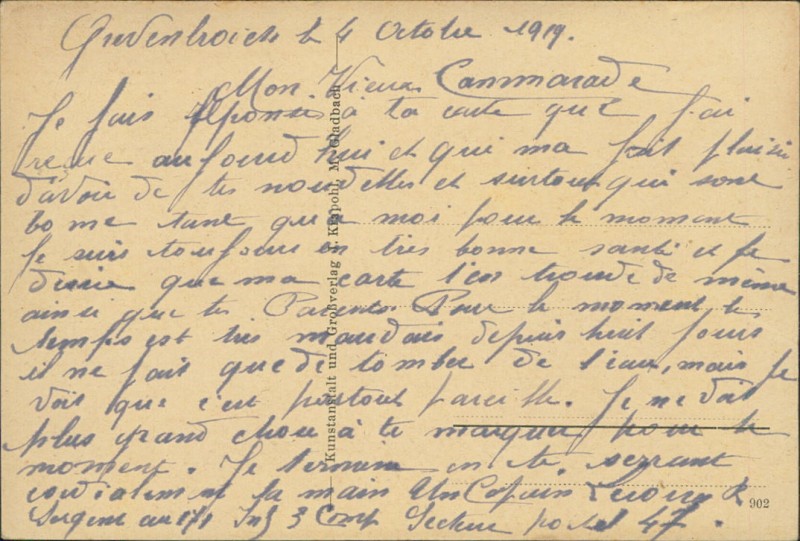 Grevenbroich le 4 Octobre 1919.
Mon Vieux Cammarade
Je fais réponse à ta carte que j'ai
reçue aujourd'hui et qui ma fait plaisir
d'avoir de tes nouvelles et surtout qui sont
bonne tant que moi pour le moment
Je suis toujours en très bonne santé et je
désire que ma carte t'en trouve de même
ainsi que tes Parents Pour le moment le
temps est très mauvais depuis huit jours
il ne fait que de tomber de l'eau, mais je
vois que c'est partout pareille. Je ne vois
plus grand chose à te marquer pour le
moment. Je termine en te serrant
cordialement la main Un Copain
Sergent au 171 Inf 3 Comp Secteur postal 47.
Kunstanstalt und Großverlag J. Krapohl, M.Gladbach
902